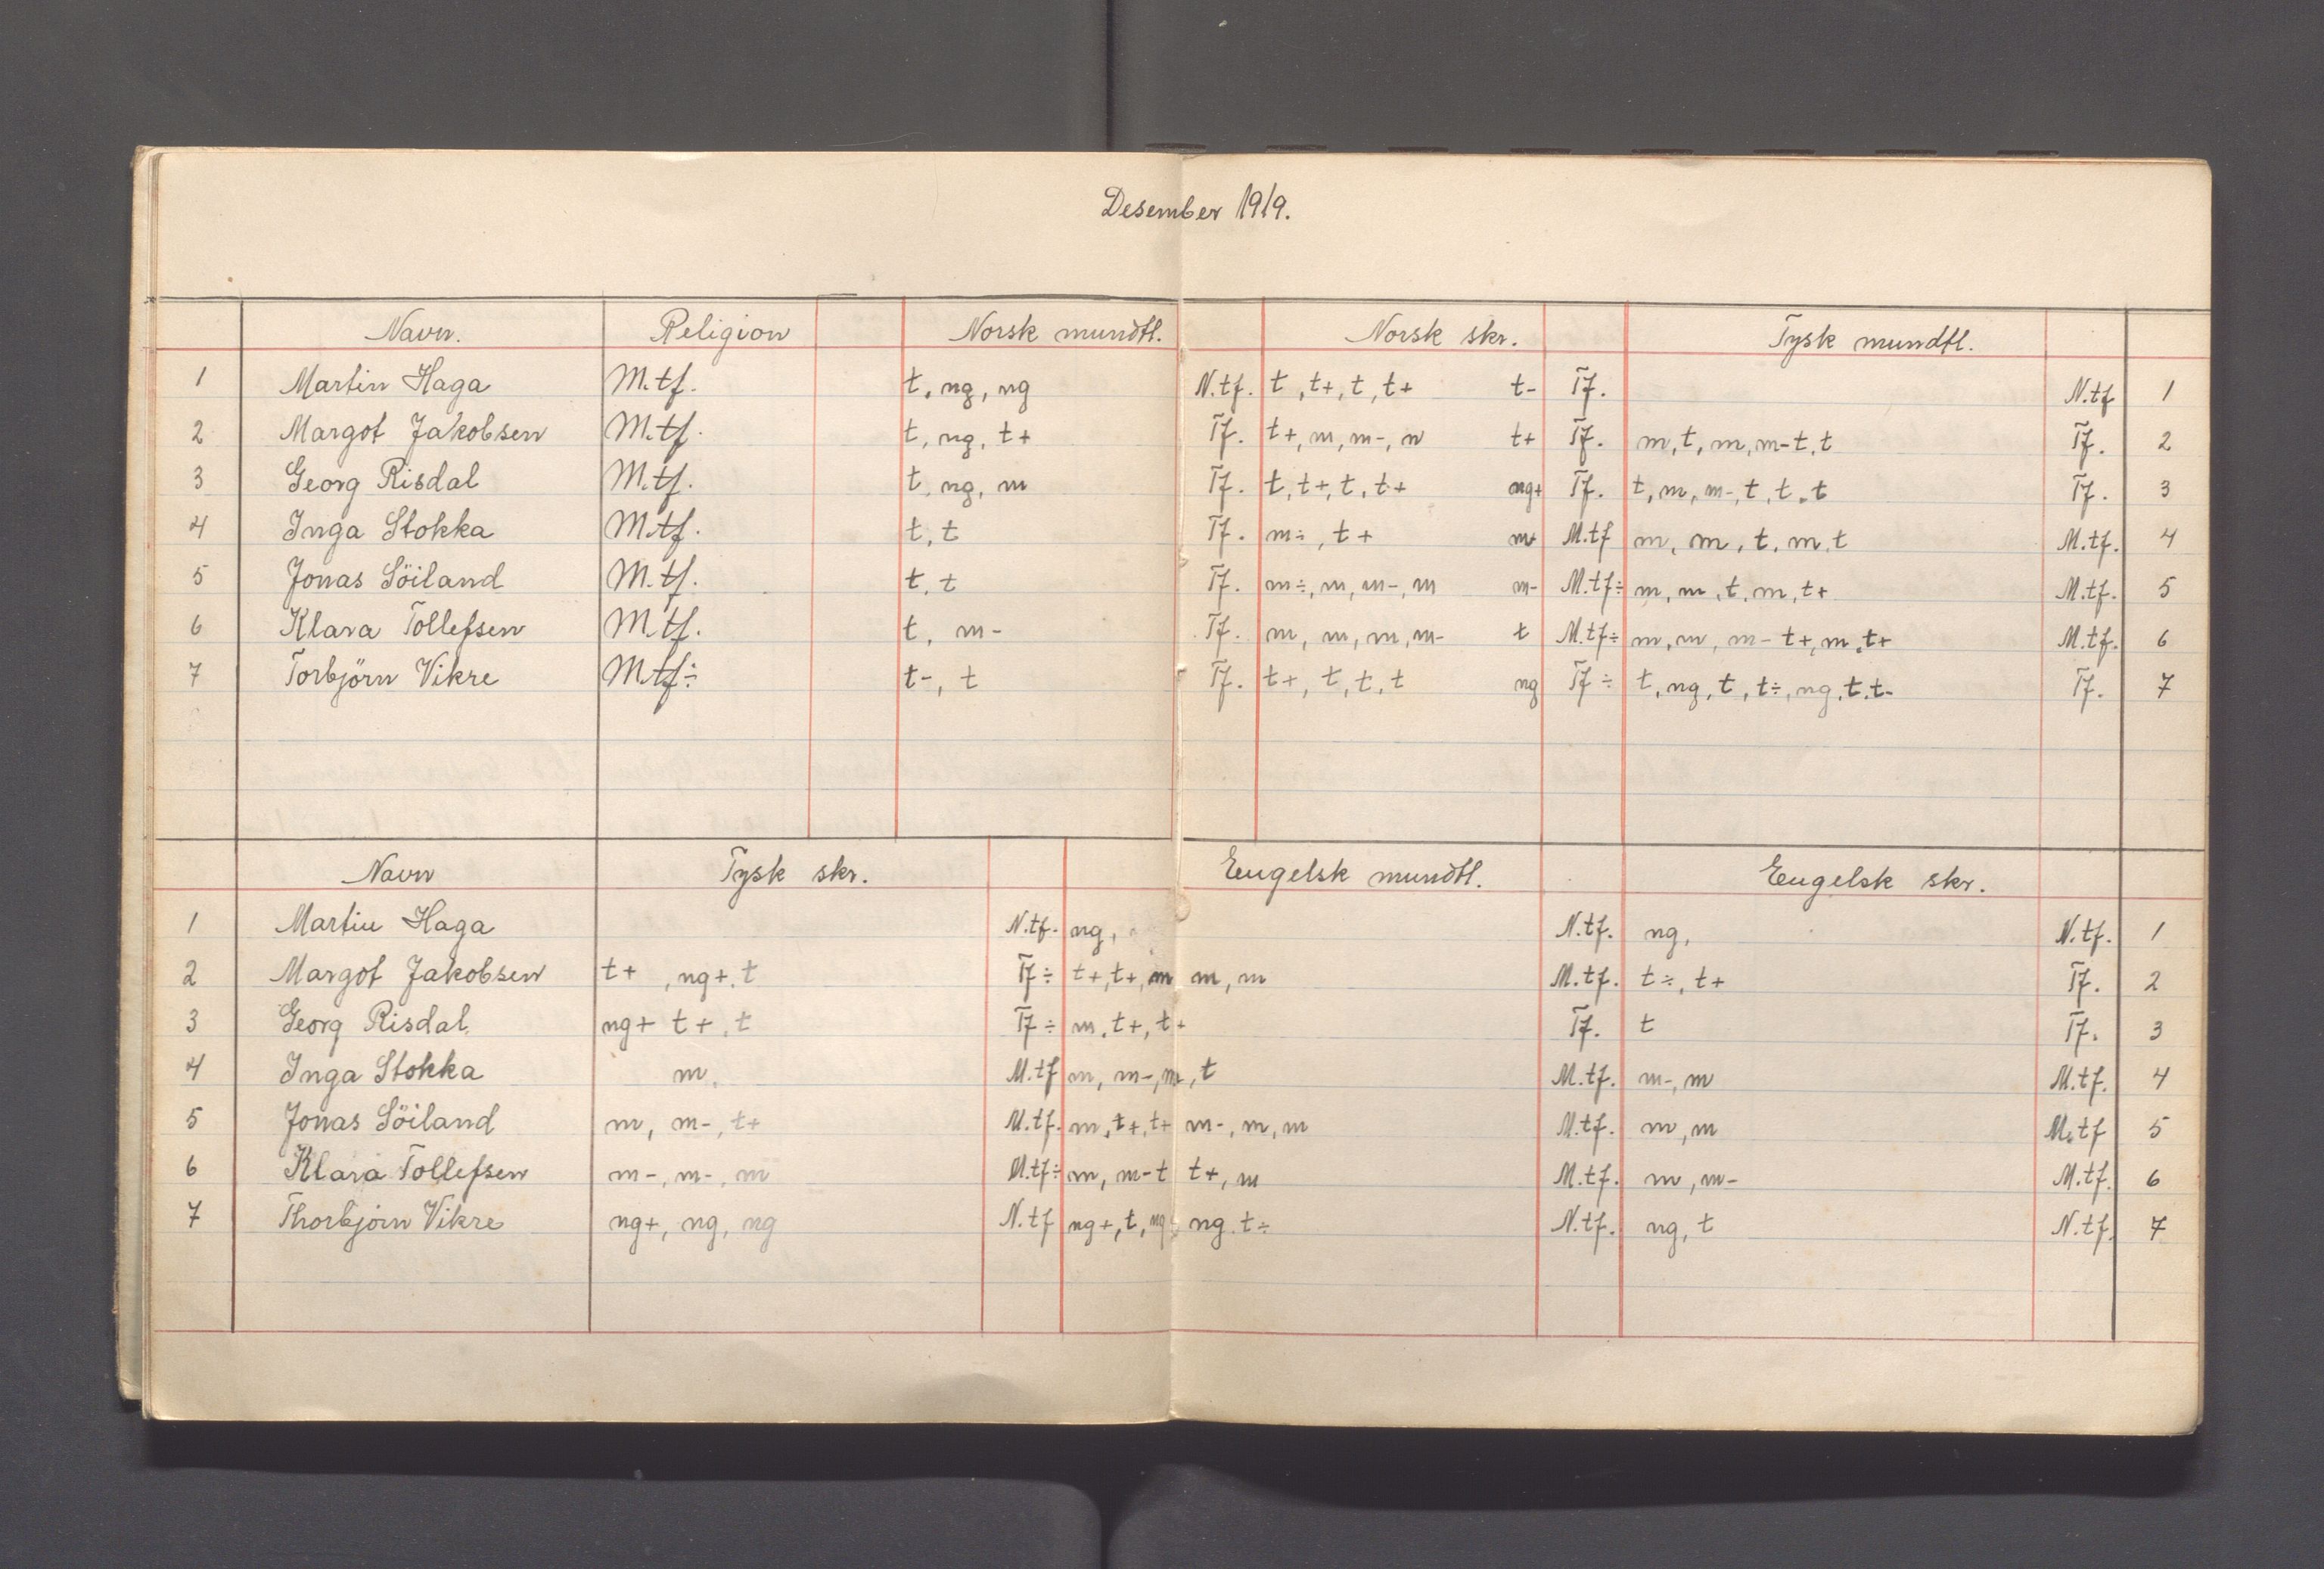 Desember 1919.
Navn. Religion Norsk mundtl. Norsk skr. Tysk mundtl.
1 Martin Haga M.tf. t, ng, ng N.tf. t, t+, t, t+ t- Tf. N.tf 1
2 Margot Jakobsen M.tf. t, ng, t+ Tf. t+, m, m-, m t+ Tf. m, t, m, m- t, t Tf. 2
3 Georg Risdal M.tf. t, ng, m Tf. t, t+, t, t+ ng+ Tf. t, m, m-, t, t, t Tf. 3
4 Inga Stokka M.tf. t, t Tf. m÷, t+ m M.tf m, m, t, m, t M.tf. 4
5 Jonas Söiland M.tf. t, t Tf. m÷, m, m-, m m- M.tf÷ m, m, t, m, t+ M.tf. 5
6 Klara Tollefsen M.tf. t, m- Tf. m, m, m, m- t M.tf÷ m, m, m- t+, m, t+ M.tf. 6
7 Torbjörn Vikre M.tf÷ t-, t Tf. t+, t, t, t ng Tf÷ t, ng, t, t÷, ng, t, t- Tf. 7
Navn Tysk skr. Engelsk mundtl. Engelsk skr.
1 Martin Haga N.tf. ng, N.tf. ng, N.tf. 1
2 Margot Jakobsen t+, ng+, t Tf÷ t+, t+, m m, m M.tf. t÷, t+ Tf. 2
3 Georg Risdal ng+ t+, t Tf÷ m, t+, t+ Tf. t Tf. 3
4 Inga Stokka m, M.tf m, m-, m, t M.tf. m-, m M.tf. 4
5 Jonas Söiland m, m-, t+ M.tf. m, t+, t+ m-, m, m M.tf. m, m M.tf 5
6 Klara Tollefsen m-, m-, m M.tf÷ m, m- t t+, m M.tf. m, m- M.tf. 6
7 Thorbjörn Vikre ng+, ng, ng N.tf ng+, t, ng ng, t÷ N.tf. ng, t N.tf. 7